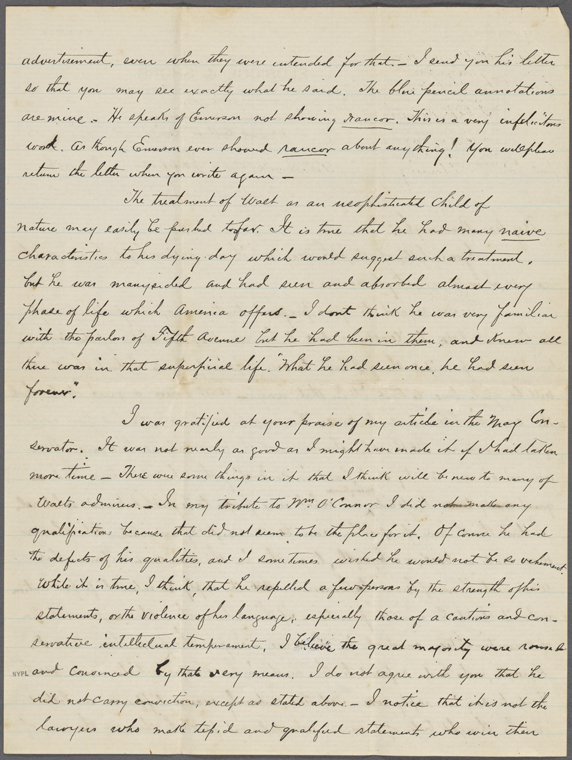 advertisement, even when they were intended for that. — I send you his letter
so that you may see exactly what he said. The blue pencil annotations
are mine. — He speaks of Emerson not showing rancor. This is a very infelicitous
word. As though Emerson ever showed rancor about anything! You will please
return the letter when you write again —
The treatment of Walt as an unsophisticated child of
nature may easily be pushed too far. It is true that he had many naive
characteristics to his dying day which would suggest such a treatment,
but he was manysided and had seen and absorbed almost every
phase of life which America offers. — I dont think he was very familiar
with the parlors of Fifth Avenue but he had been in them, and knew all
there was in that superficial life. "What he had seen once, he had seen
forever".
I was gratified at your praise of my article in the May Con-
servator. It was not nearly as good as I might have made it if I had taken
more time — There were some things in it that I think will be new to many of
Walts admirers. — In my tribute to Wm O'Connor I did not make any
qualification because that did not seem to be the place for it. Of course he had
the defects of his qualities, and I sometimes wished he would not be so vehement.
While it is true, I think, that he repelled a few persons by the strength of his
statements, or the violence of his language, especially those of a cautious and con-
servative intellectual temperament, I believe the great majority were roused
and convinced by that very means. I do not agree with you that he
did not carry conviction, except as stated above. — I notice that it is not the
lawyers who make tepid and qualified statements who win their
NYPL